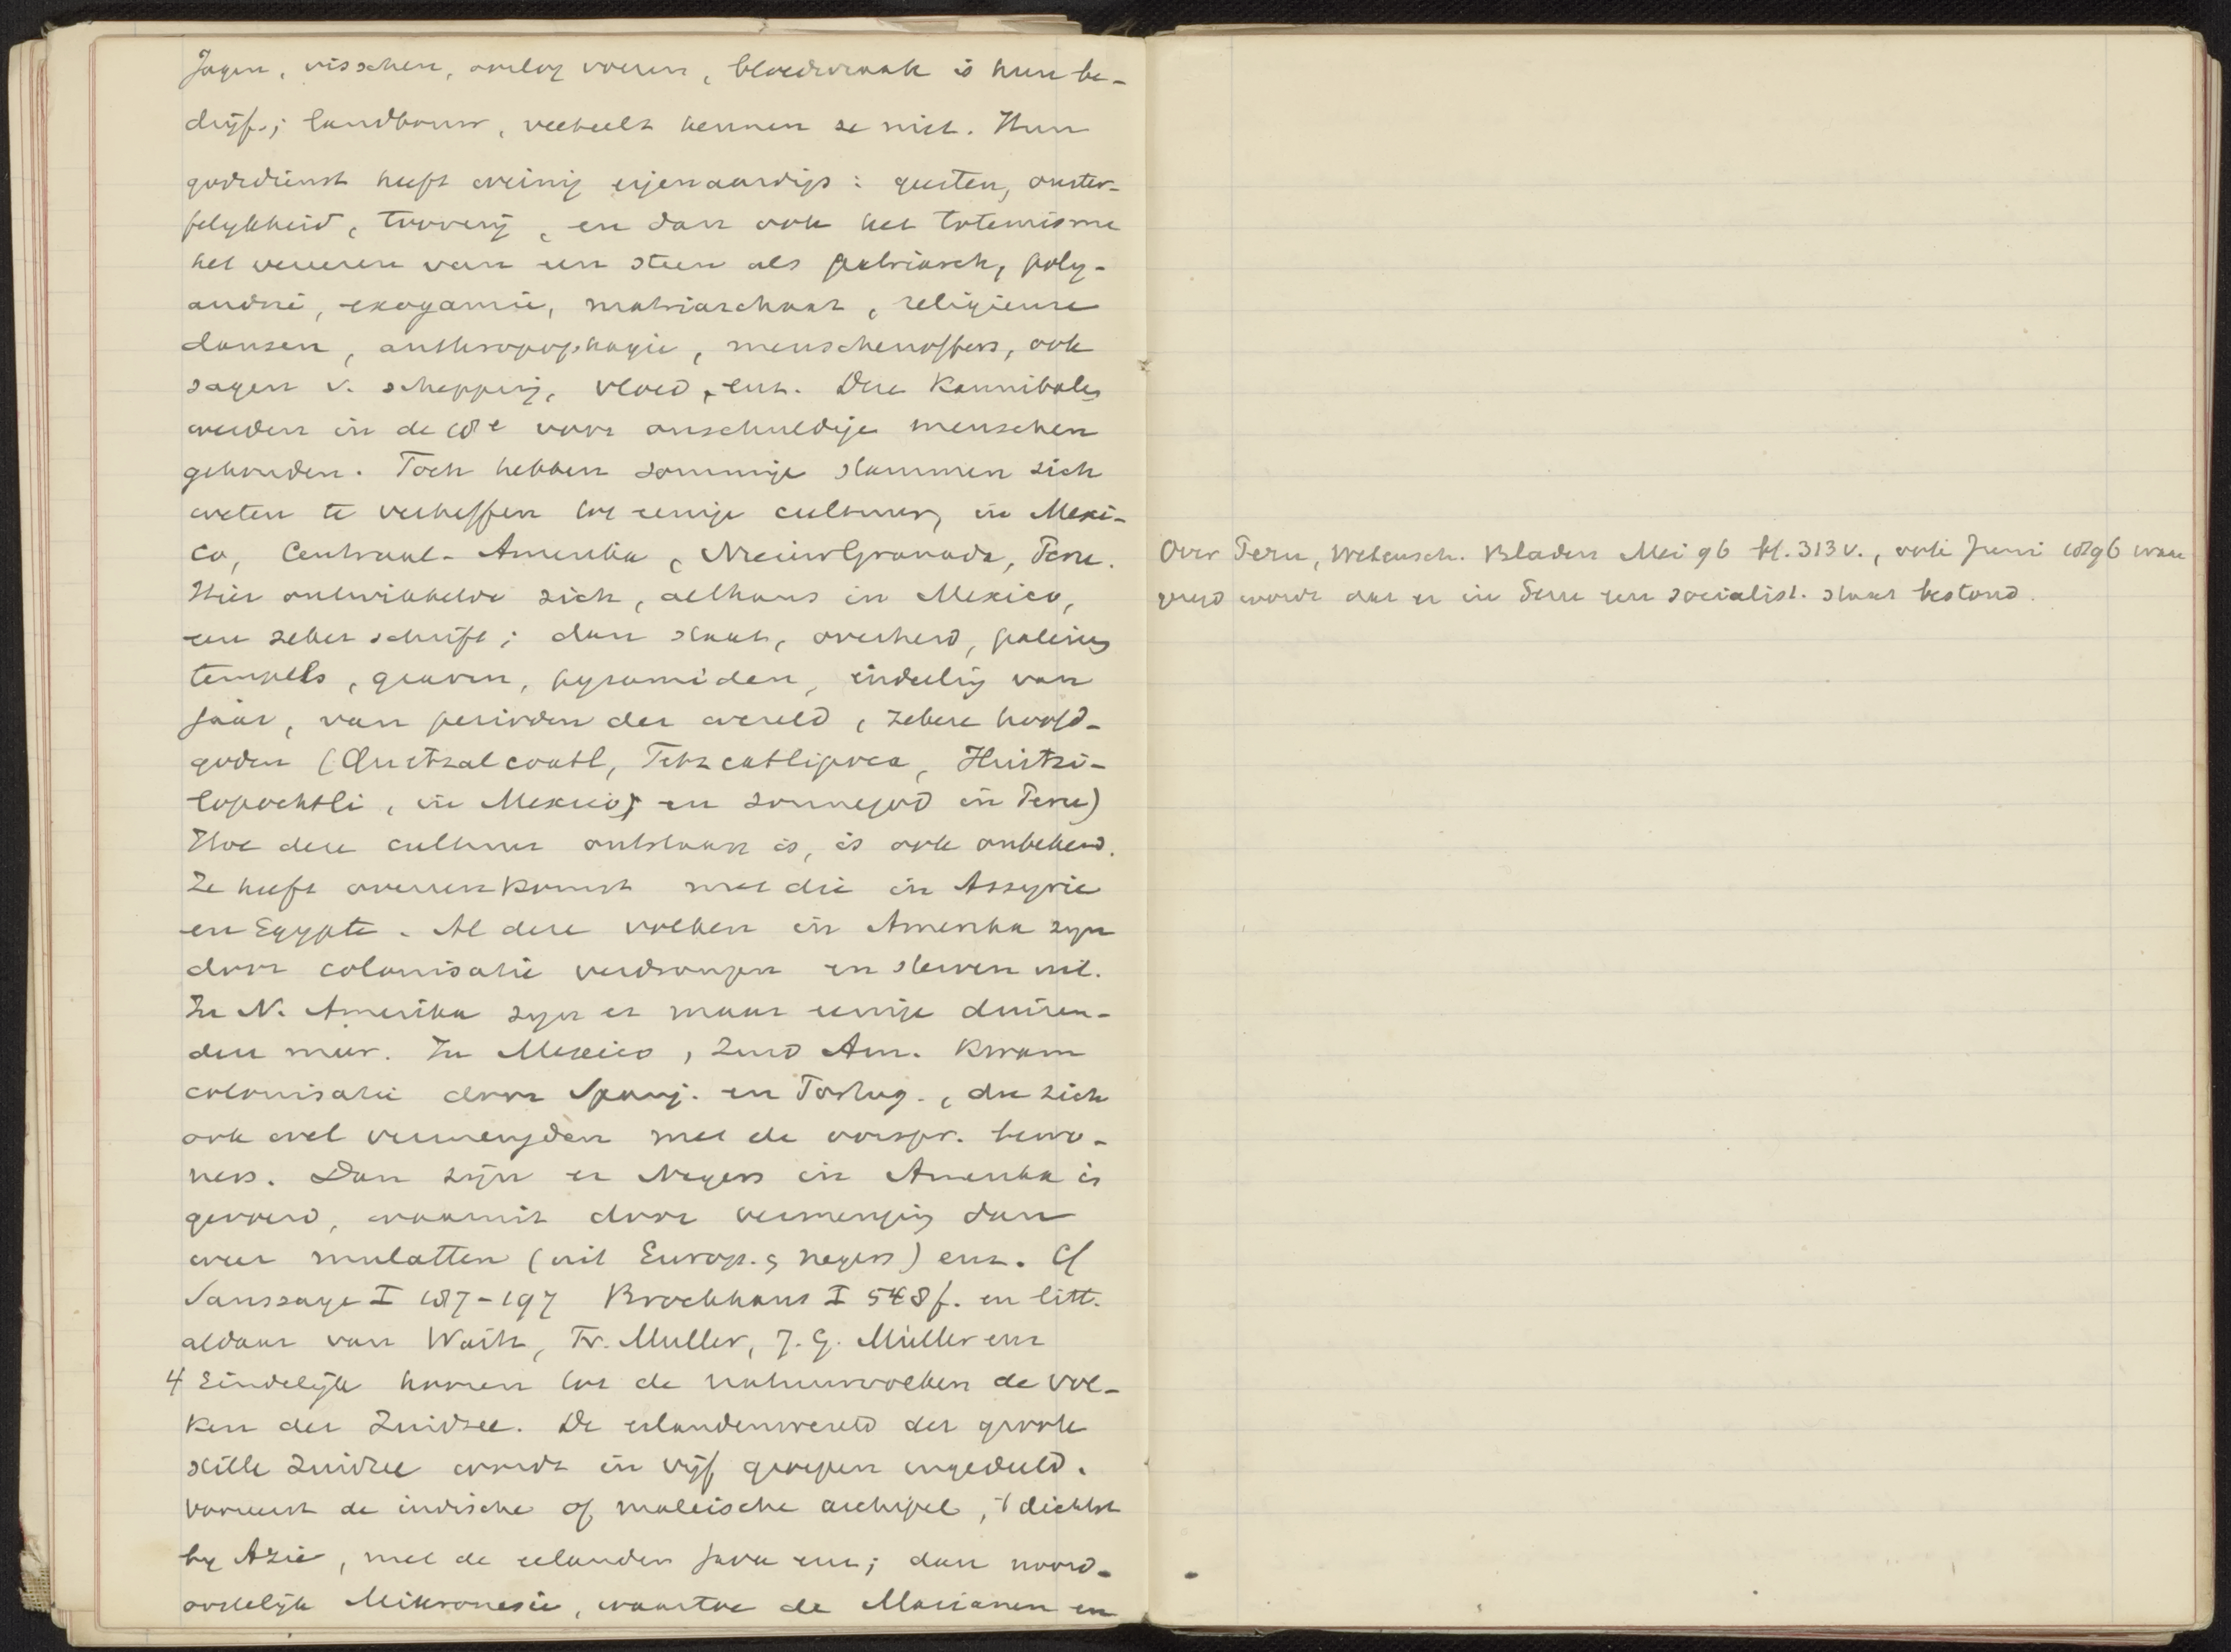 Jagen, visschen, oorlog voeren, bloedwraak is hun be-
drijf; landbouw, veeteelt kennen ze niet. Hun
godsdienst heeft weinig eigenaardigs: geesten, onster-
felykheid, toovery, en dan ook het totemisme
het vereeren van een steen als patriarch, poly-
andrie, exogamie, matriarchaat, religieuse
dansen, anthropophagie, menschenoffers, ook
sagen v. schepping, vloed, enz. Deze Kannibalen
werden in de 18e voor onschuldige menschen
gehouden. Toch hebben sommige stammen zich
weten te verheffen tot eenige cultuur, in Mexi-
co, Centraal-Amerika, Nieuw Granada, Peru.
Hier ontwikkelde zich, althans in Mexico,
een zeker schrift; dan staat, overheid, paleizen
tempels, graven, pyramiden, indeeling van
jaar, van perioden der wereld, zekere hoofd-
goden (Quetzalcoatl, Tetzcatlipoca, Huitzi-
lopochtli, in Mexico; en zonnegod in Peru)
Hoe deze cultuur ontstaan is, is ook onbekend.
Ze heeft overeenkomst met die in Assyrie
en Egypte. Al deze volken in Amerika zyn
door colonisatie verdrongen en sterven uit.
In N. Amerika zyn er maar eenige duizen-
den meer. In Mexico, Zuid Am. kwam
colonisatie door Spanj. en Portug., die zich
ook wel vermengden met de oorspr. bewo-
ners. Dan zijn er Negers in Amerika in
gevoerd, waaruit door vermenging dan
weer mulatten (uit Europ. & negers) enz. Cf
Saussaye I 187-197 Brockhaus I 548 f. en litt.
aldaar van Waitz, Fr. Muller, J. G. Müller enz
4 Eindelijk komen tot de natuurvolken de vol-
ken der Zuidzee. De eilandenwereld der groote
stille Zuidzee wordt in vijf groepen ingedeeld.
vooreerst de indische of maleische archipel, 't dichtst
by Azie, met de eilanden Java enz; dan noord-
oostelijk Mikronesie, waartoe de Marianen en
Over Peru, Wetensch. Bladen Mei 96 bl. 313 v., ook Juni 1896 waar
beweerd wordt dat er in Peru een socialist. staat bestond.